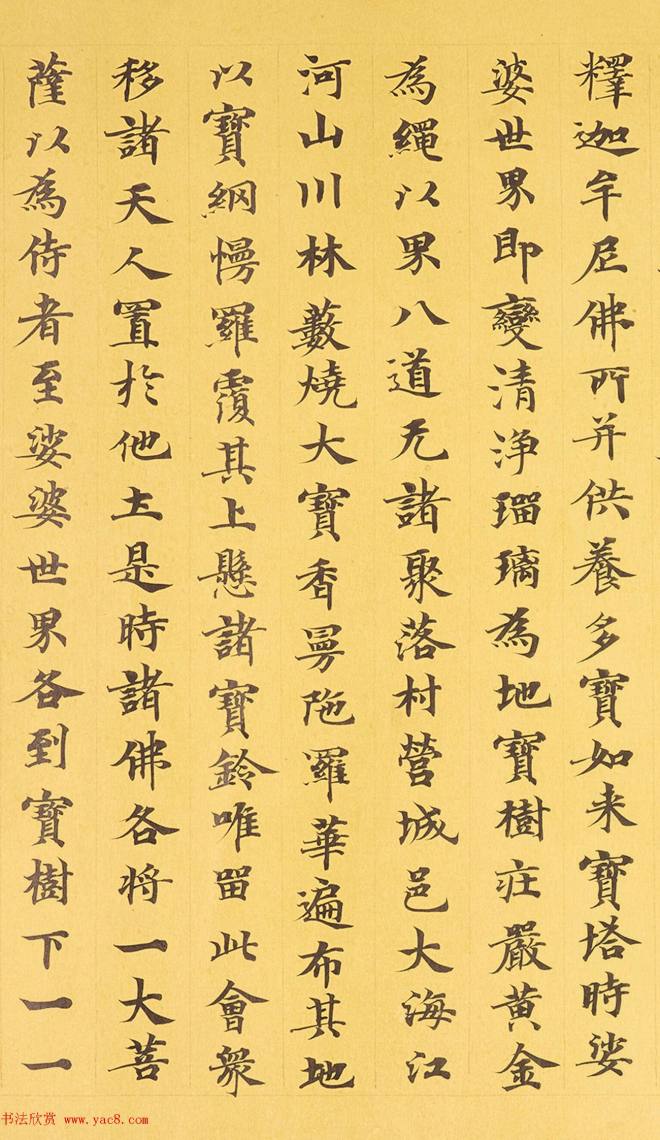 釋迦牟尼佛所并供養多寶如来寶塔時娑
婆世界即變清淨瑠璃為地寶樹莊嚴黃金
為繩以界八道无諸聚落村營城邑大海江
河山川林藪燒大寶香曼陁羅華遍布其地
以寶網幔羅覆其上懸諸寶鈴唯留此會衆
移諸天人置於他土是時諸佛各將一大菩
薩以為侍者至娑婆世界各到寶樹下一一
书法欣赏 www.yac8.com